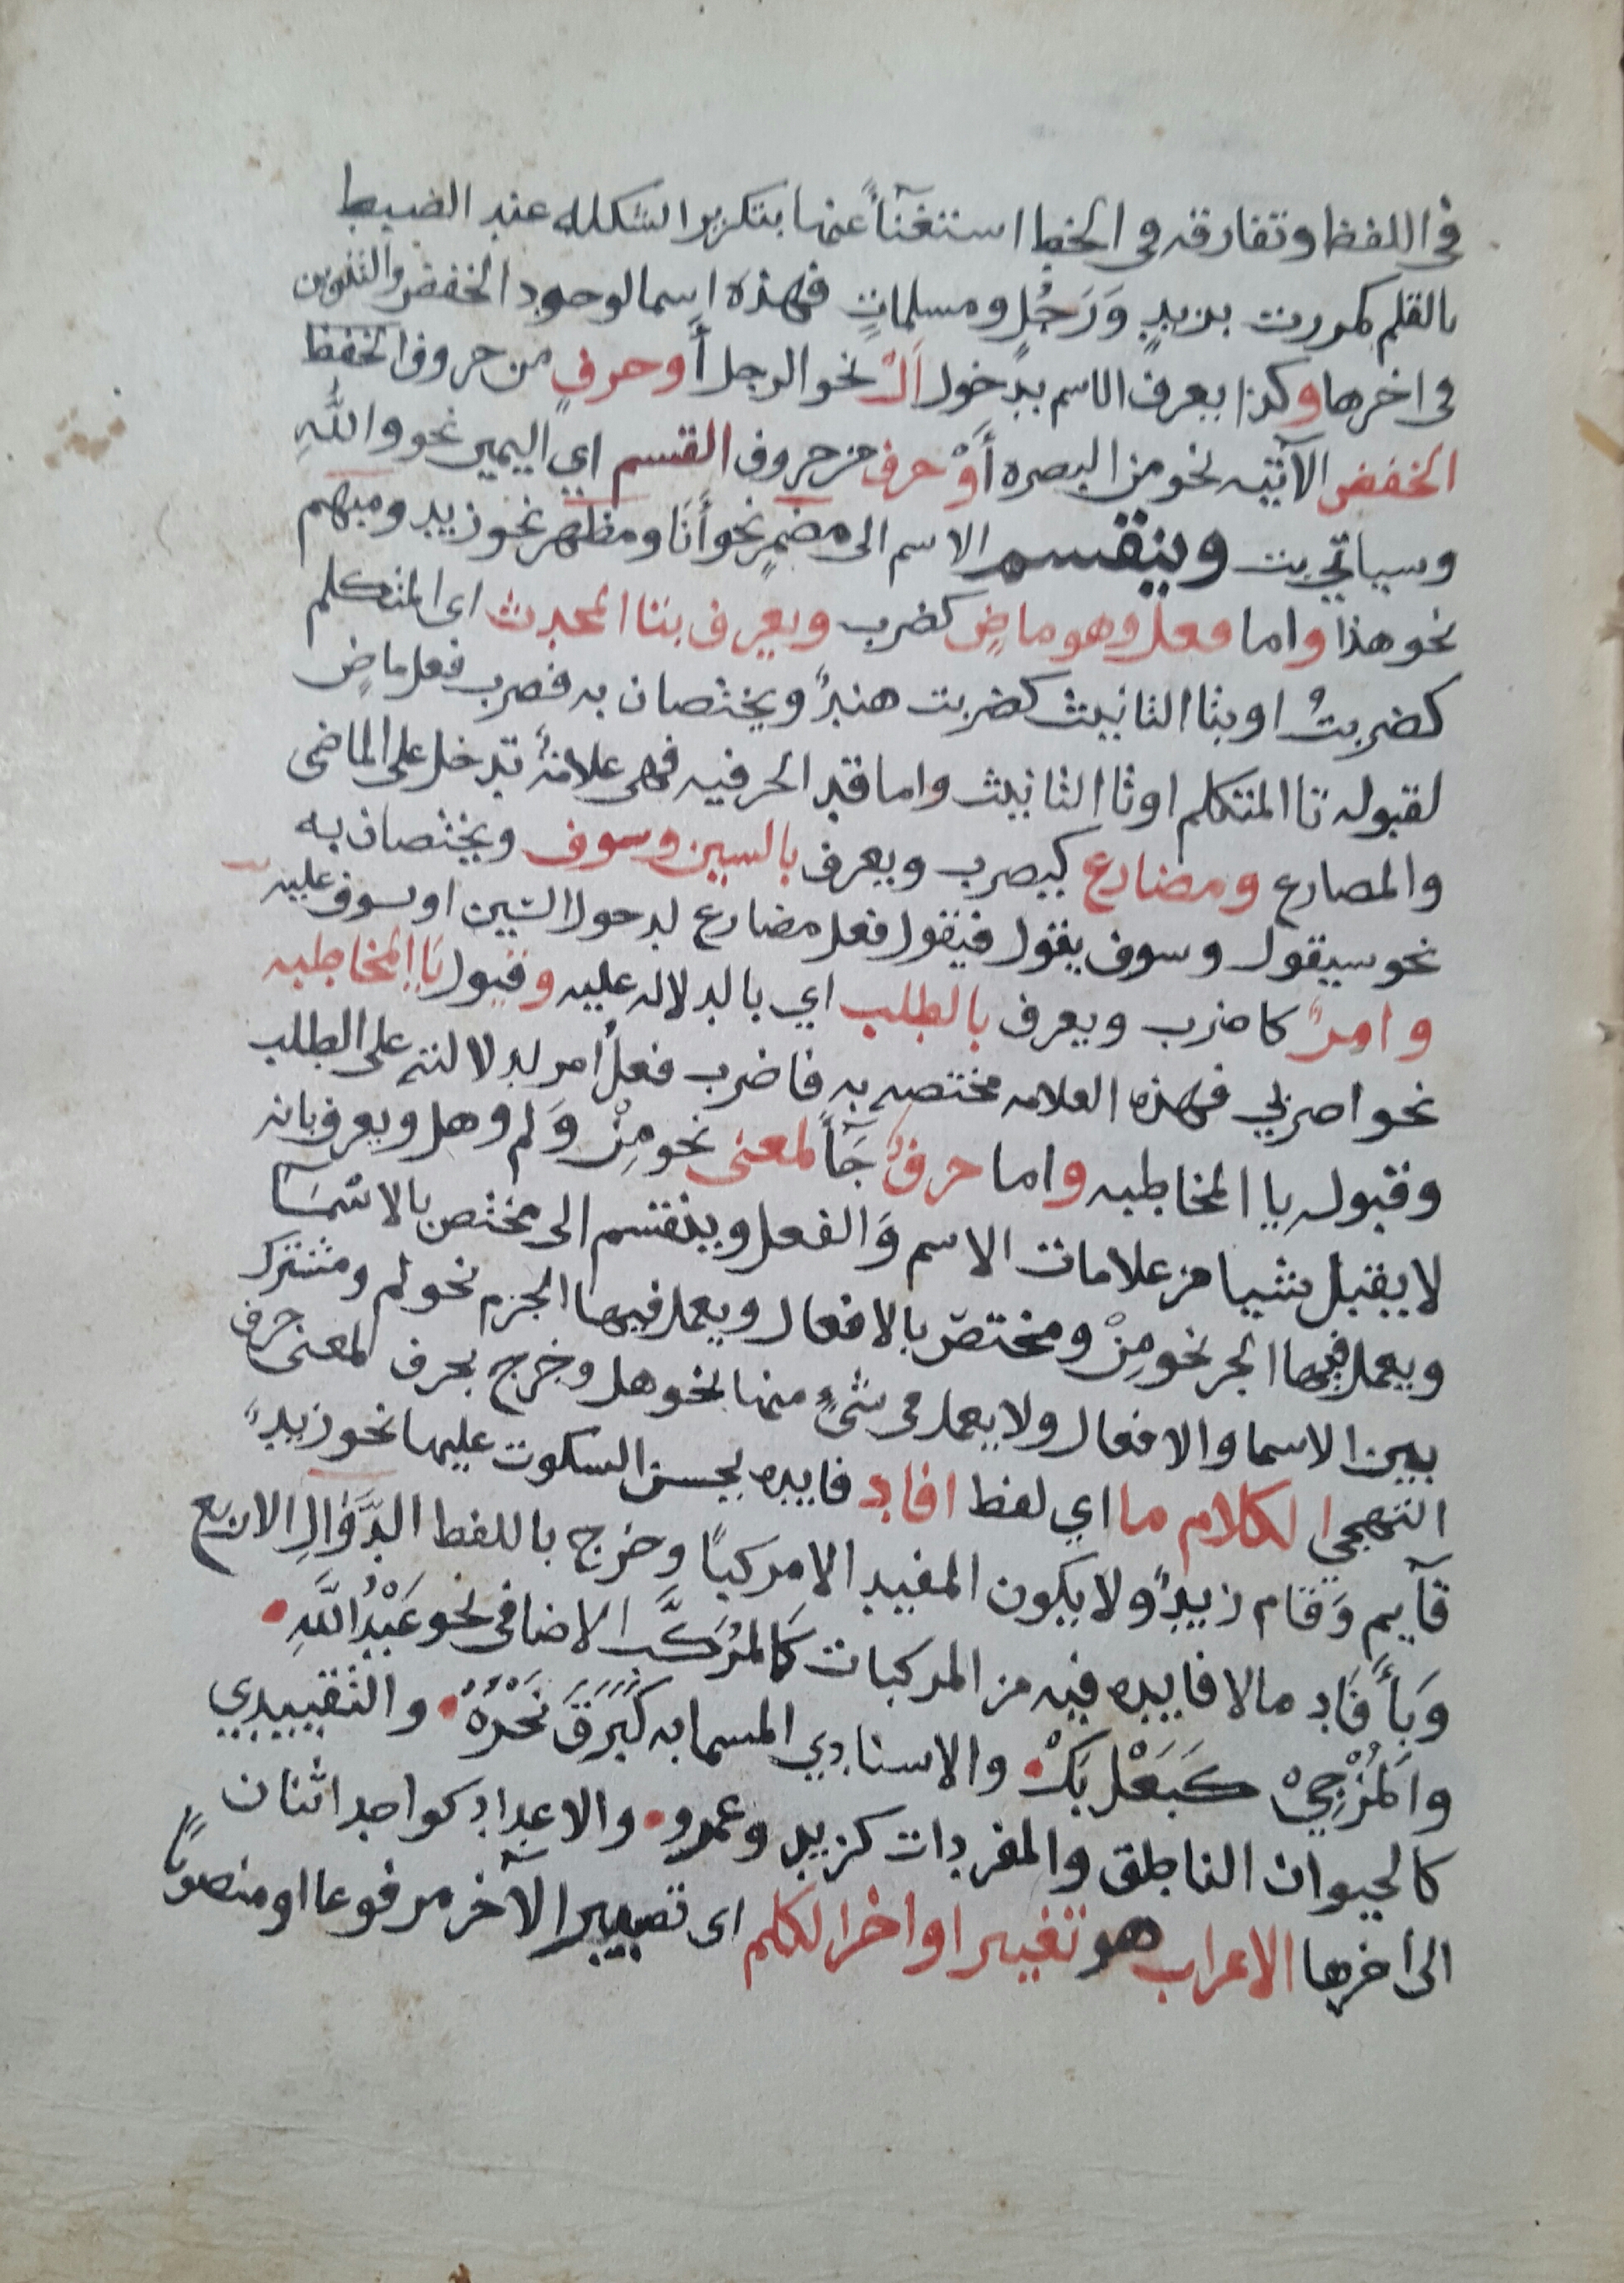 في اللفظ وتفارقه في الخط استغنآءً عنها بتكرير الشكله عند الضبط
بالقلم كمررت بزيدٍ وَرَجُلٍ ومسلماتٍ فهذه اسما لوجود الخفض والتنوين
في اخرها وكذا يعرف الاسم بدخول اَلْ نحو الرجل أو حرفٍ من حروف الخفظ
الخفض الآتيه نحو من البصره أَوْ حرف من حروف القسم اي اليمين نحو واللّهِ
وسياتي بت وينقسم الاسم الى مضمرٍ نحو أَنَا ومظهر نحو زيد ومبهم
نحو هذا واما فعل وهو ماضٍ كضرب ويعرف بتا المحدث اى المتكلم
كضربتُ او بتا التانيث كضربت هندٌ ويختصان به فضرب فعل ماضٍ
لقبوله تا المتكلم او تا التانيث واما قد الحرفيه فهى علامةٌ تدخل على الماضى
والمصارع ومضارع كيصرب ويعرف بالسين وسوف ويختصان به
نحو سيقول وسوف يقول فيقول فعل مضارع لدحول السين او سوف عليه
وامرٌ كاضرب ويعرف بالطلب اي بالدلاله عليه وقبول يَا المخاطبه
نحو اصربي فهذه العلامه مختصه به فاضرب فعلُ امر لدلالته على الطلب
وقبوله يا المخاطبه واما حرفٌ جَآءَ لمعنى نحو مِنْ وَلم وهل ويعرف بانه
لا يقبل شيا من علامات الاسم وَالفعل وينقسم الى مختص بالاسْمَآ
ويعمل فيها الجر نحو مِنْ ومختصّ بالافعال ويعمل فيها الجزم نحو لم ومشترك
بين الاسما والافعال ولا يعمل فى شىءٍ منها نحو هل وخرج بحرف لمعنى حرف
التهجي الكلام ما اي لفظ افاد فايده يحسن السكوت عليها نحو زيدٌ
قآيم وَقام زيدٌ ولا يكون المفيد الا مركبًا وخرج باللفط الدَّوَالِ الاربع
وَبأَفَاد ما لا فايده فيه من المركبات كَالمُرَكَّب الاضافى نحو عَبْدُ اللَّهِ
وَالمَزْجِيْ كَبَعْلَبَكْ والاسنادي المسما به كَبَرَقَ نَحْرُهُ والتقييدي
كالحيوان الناطق والمفردات كزيد وعمرو والاعداد كواحد اثنان
الى اخرها الاعراب هو تغيير اواخر الكلم اى تصيير الآخر مرفوعا او منصوبًا